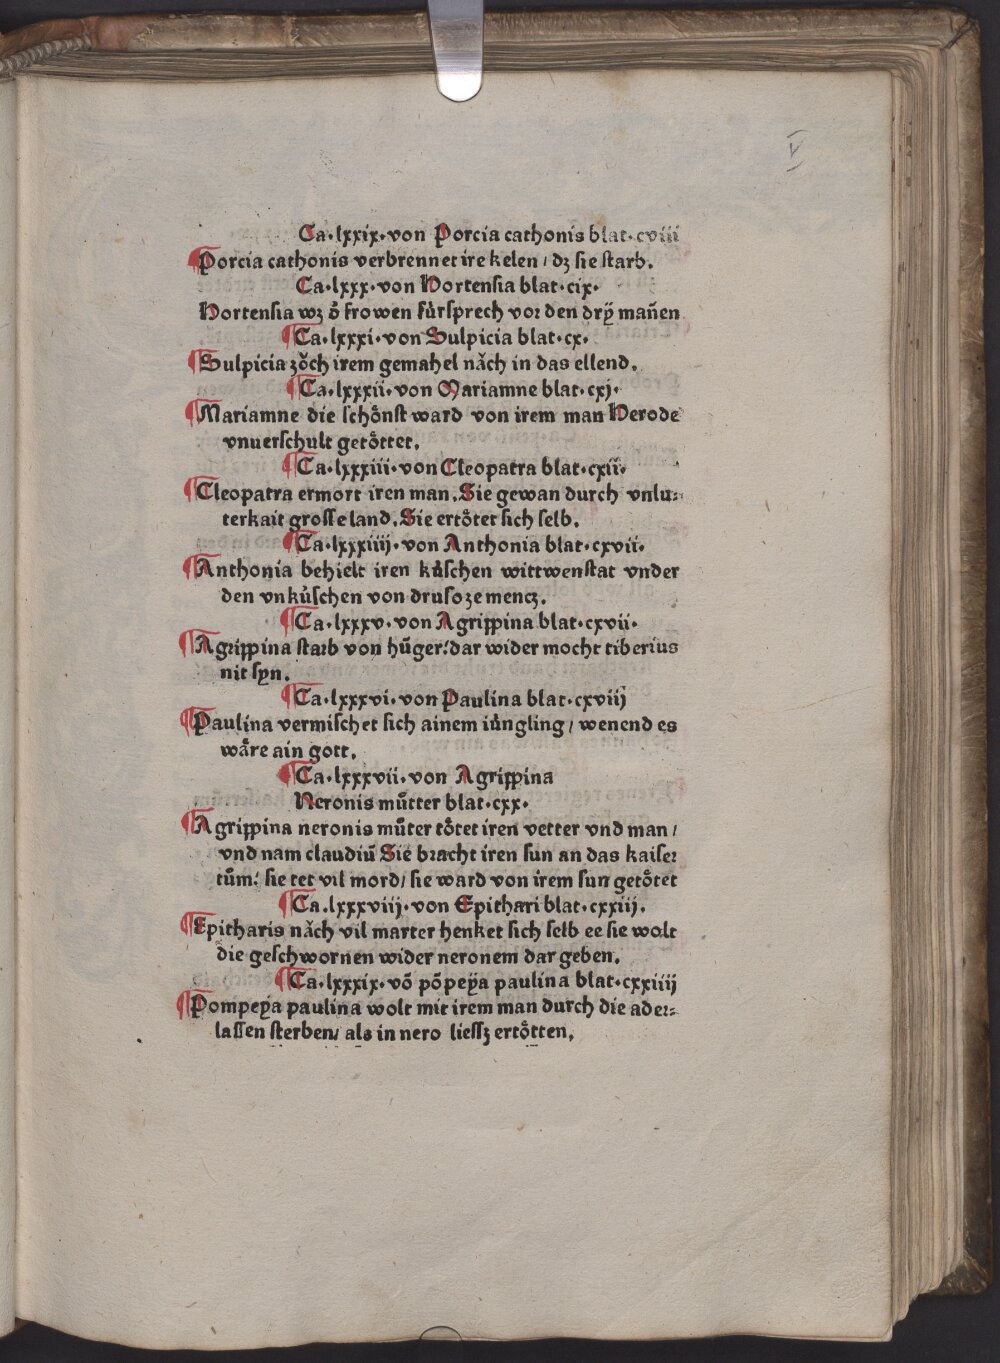 V
Ca.lxxix.von Porcia cathonis blat.cviii
Porcia cathonis verbrennet ire kelen / dz sie starb.
Ca.lxxx.von Hortensia blat.cix.
Hortensia wz ð frowen fürsprech vor den drÿ mañen
¶Ca.lxxxi.von Sulpicia blat.cx.
¶Sulpicia zoͤch irem gemahel naͤch in das ellend.
¶Ca.lxxxii.von Mariamne blat.cxj.
¶Mariamne die schoͤnst ward von irem man Herode
vnuerschult getoͤttet.
¶Ca.lxxxiii.von Cleopatra blat.cxii.
¶Cleopatra ermort iren man.Sie gewan durch vnlu⸗
terkait grosse land.Sie ertoͤtet sich selb.
¶Ca.lxxxiiij.von Anthonia blat.cxvii.
¶Anthonia behielt iren kuͤschen wittwenstat vnder
den vnkuͤschen von druso ze mencz.
¶Ca.lxxxv.von Agrippina blat.cxvii.
¶Agrippina starb von hũger:dar wider mocht tiberius
nit syn.
¶Ca.lxxxvi.von Paulina blat.cxviij
¶Paulina vermischet sich ainem iuͤngling / wenend es
waͤre ain gott.
¶Ca.lxxxvii.von Agrippina
Neronis muͤtter blat.cxx.
¶Agrippina neronis muͤter toͤtet iren vetter vnd man /
vnd nam claudiũ Sie bracht iren sun an das kaiser
tuͤm: sie tet vil mord / sie ward von irem sun getoͤtet
¶Ca.lxxxviij.von Epithari blat.cxxiij.
¶Epitharis naͤch vil marter henket sich selb ee sie wolt
die geschwornen wider neronem dar geben.
¶Ca.lxxxix.võ põpeÿa paulina blat.cxxiiij
¶Pompeÿa paulina wolt mit irem man durch die ader⸗
lassen sterben / als in nero liessz ertoͤtten.